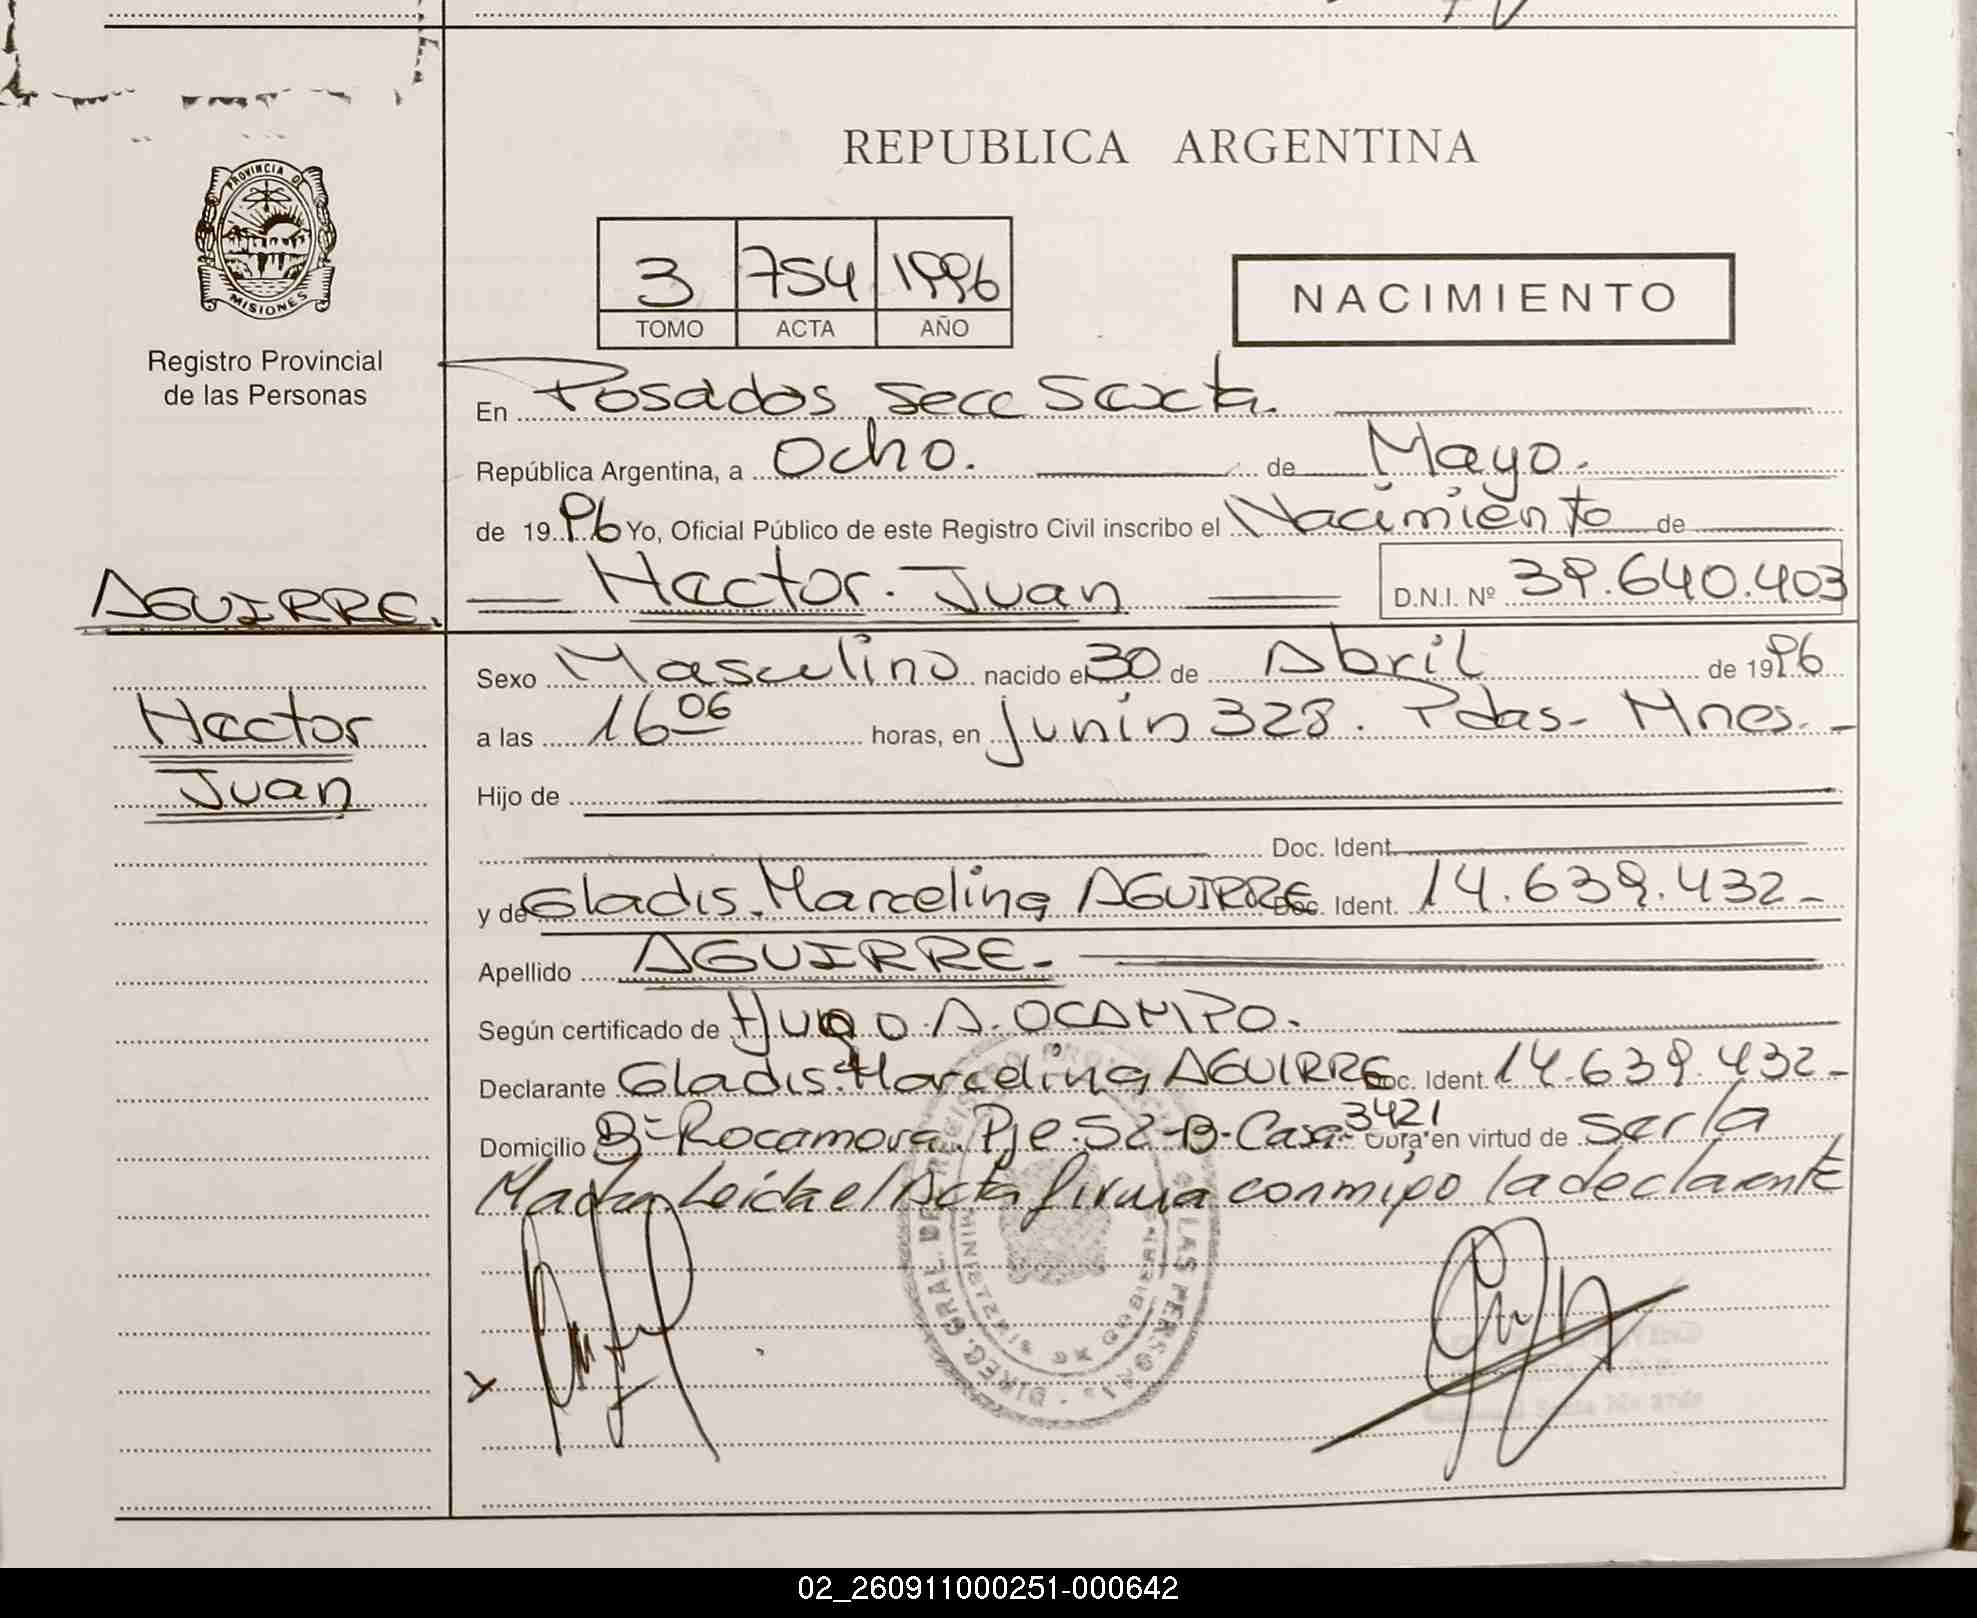 REPUBLICA ARGENTINA
PROVINCIA DE
MISIONES
Registro Provincial
de las Personas
3 754 1996
TOMO ACTA AÑO
NACIMIENTO
En Posadas Secc Sexta.
República Argentina, a Ocho. de Mayo.
de 1996 Yo, Oficial Público de este Registro Civil inscribo el Nacimiento de
AGUIRRE. Hector. Juan D.N.I. Nº 39.640.403
Sexo Masculino nacido el 30 de Abril de 1996
Hector
Juan
a las 16 06 horas, en Junin 328. Pdas- Mnes.-
Hijo de
Doc. Ident.
y de Gladis. Marcelina AGUIRRE Doc. Ident. 14.639.432-
Apellido AGUIRRE.-
Según certificado de Hugo A. OCAMPO.
Declarante Gladis. Marcelina AGUIRRE Doc. Ident 14.639.432-
Domicilio Bº Rocamora. Pje. 52-B-Casa- 3421 Obra en virtud de ser la
Madre. Leida el Acta firma conmigo la declarante
DIREC. GRAL. DE REGISTRO PROVINCIAL DE LAS PERSONAS
MINISTERIO DE GOBIERNO
02_260911000251-000642